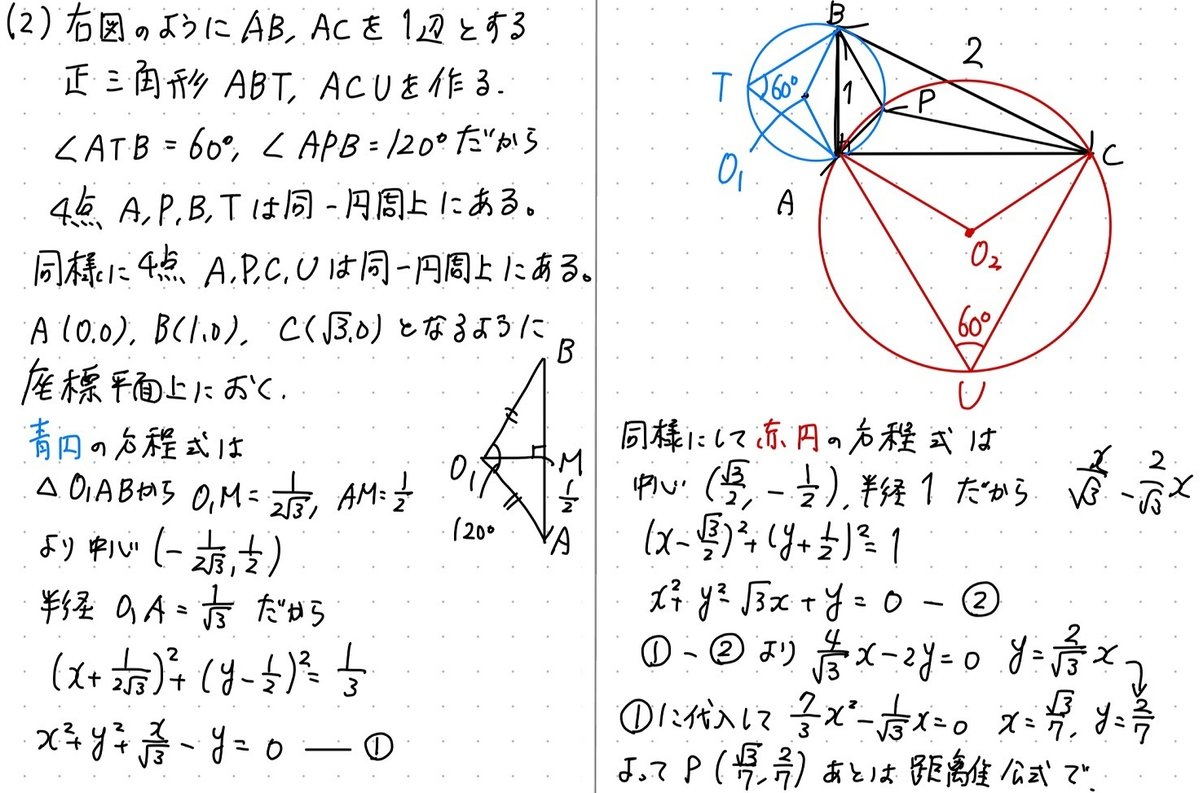 (2) 右図のようにAB, ACを1辺とする
正三角形ABT, ACUを作る.
∠ATB=60°, ∠APB=120°だから
4点 A,P,B,Tは同一円周上にある。
同様に4点 A,P,C,Uは同一円周上にある。
A(0,0), B(1,0), C(√3,0)となるように
座標平面上におく.
青円の方程式は
△O₁ABから O₁M=1/2√3, AM=1/2
より中心(-1/2√3, 1/2)
半径 O₁A=1/√3 だから
(x+1/2√3)²+(y-1/2)²=1/3
x²+y²+x/√3-y=0 ― ①
B
O₁
M
1/2
120°
A
B
2
T
60°
1
P
O₁
A
C
O₂
60°
U
同様にして赤円の方程式は
中心(√3/2, -1/2), 半径1だから
x/√3 - 2/√3 x
(x-√3/2)²+(y+1/2)²=1
x²+y²-√3x+y=0 ― ②
①-②より 4/√3 x-2y=0 y=2/√3 x
①に代入して 7/3 x²-1/√3 x=0 x=√3/7, y=2/7
よってP(√3/7, 2/7) あとは距離公式で.